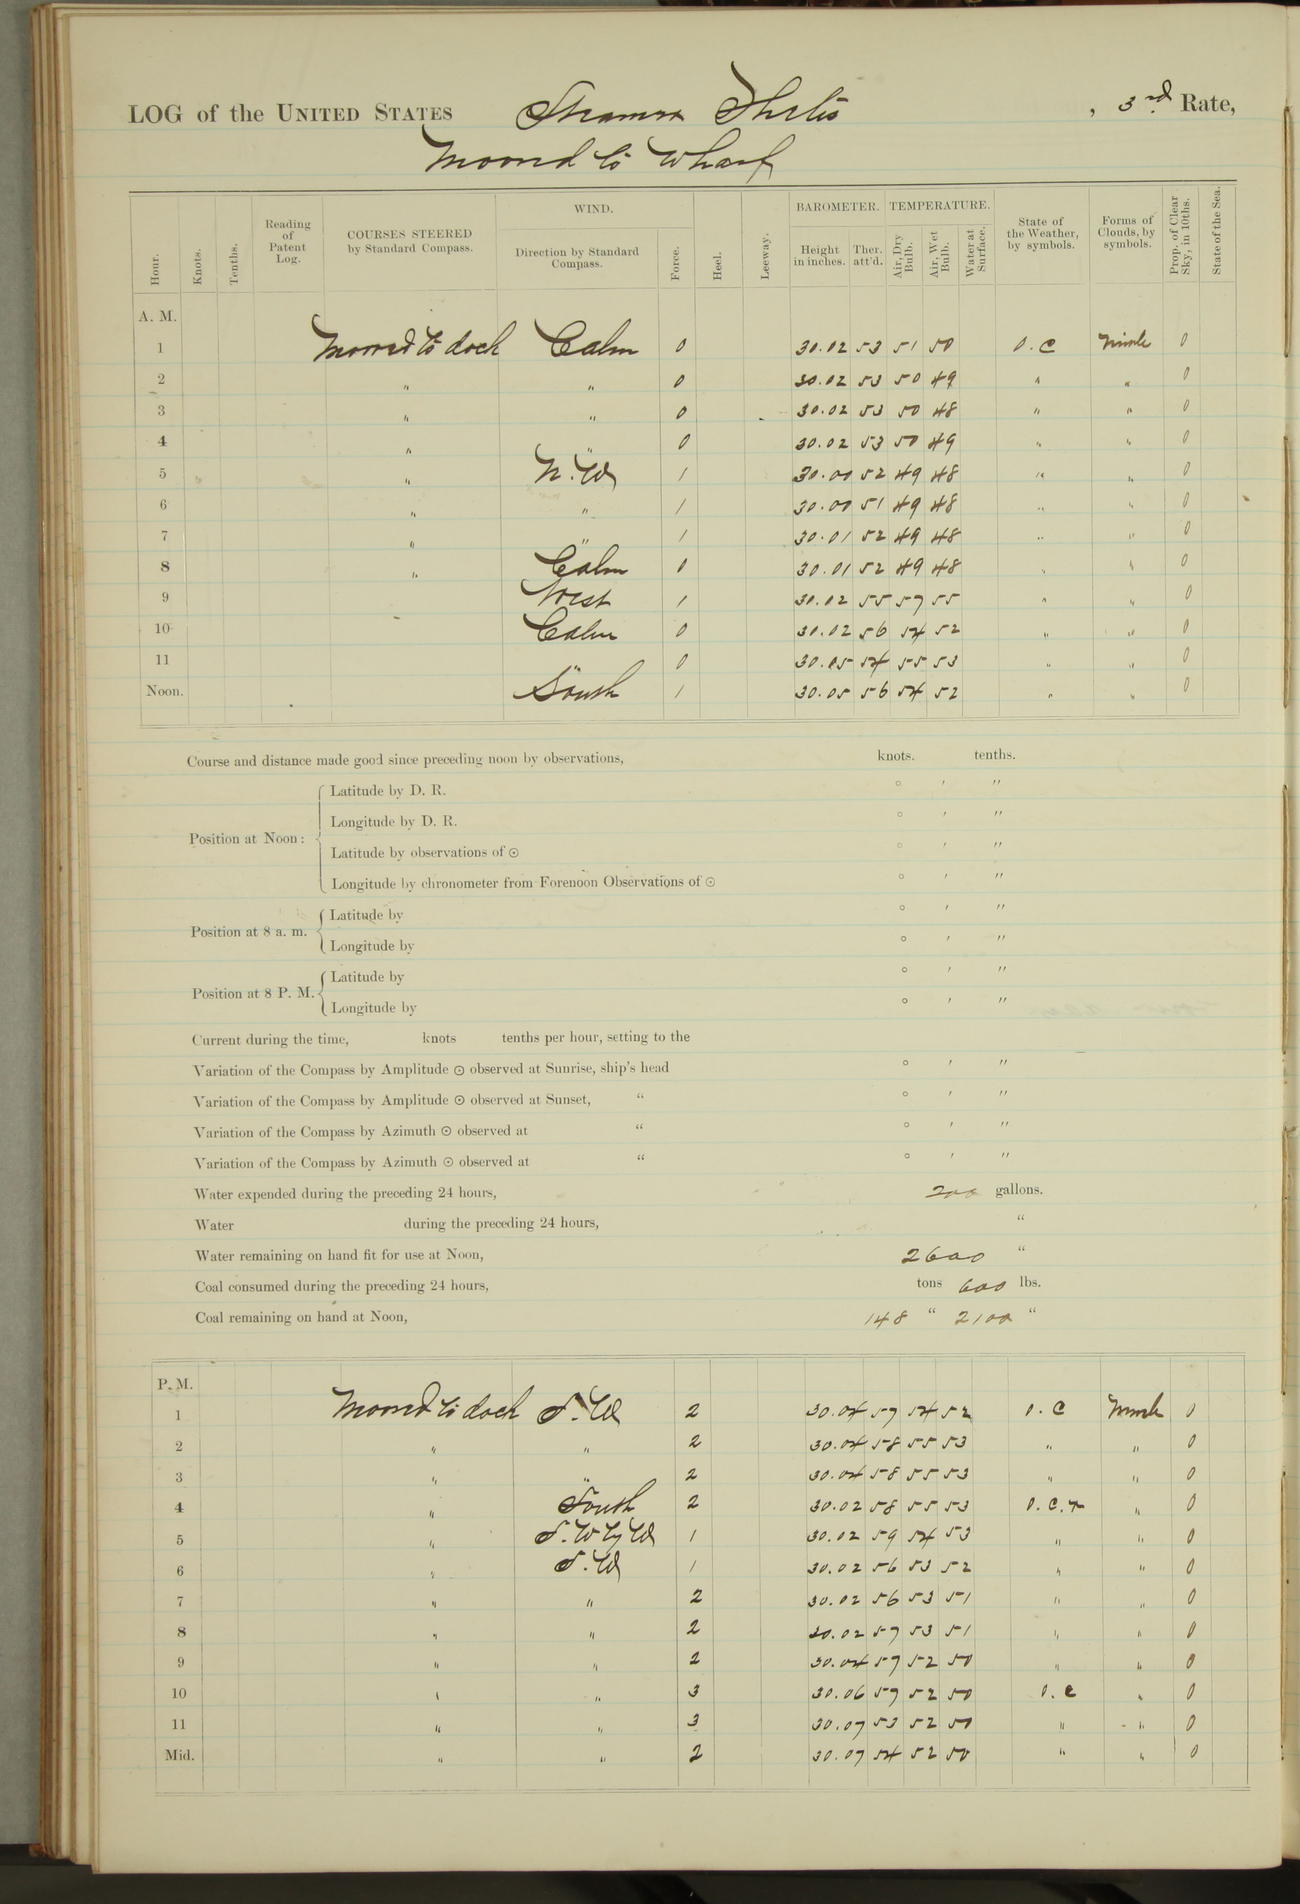 LOG of the UNITED STATES Steamer Thetis, 3rd Rate,
Moored to Wharf
Hour. Knots. Tenths. Reading of Patent Log. COURSES STEERED by Standard Compass. WIND. Direction by Standard Compass. Force. Heel. Leeway. BAROMETER. Height in inches. Ther. att'd. TEMPERATURE. Air, Dry Bulb. Air, Wet Bulb. Water at Surface. State of the Weather, by symbols. Forms of Clouds, by symbols. Prop. of Clear Sky, in 10ths. State of the Sea.
A. M.
1 Moored to dock Calm 0 30.02 53 51 50 O.C Nimb 0
2 " " 0 30.02 53 50 49 " " 0
3 " " 0 30.02 53 50 48 " " 0
4 " " 0 30.02 53 50 49 " " 0
5 " N.W 1 30.00 52 49 48 " " 0
6 " " 1 30.00 51 49 48 " " 0
7 " " 1 30.01 52 49 48 " " 0
8 " Calm 0 30.01 52 49 48 " " 0
9 West 1 30.02 55 57 55 " " 0
10 Calm 0 30.02 56 54 52 " " 0
11 " 0 30.05 54 55 53 " " 0
Noon. South 1 30.05 56 54 52 " " 0
Course and distance made good since preceding noon by observations, knots. tenths.
Position at Noon:
Latitude by D. R. ° ′ ″
Longitude by D. R. ° ′ ″
Latitude by observations of ☉ ° ′ ″
Longitude by chronometer from Forenoon Observations of ☉ ° ′ ″
Position at 8 a. m.
Latitude by ° ′ ″
Longitude by ° ′ ″
Position at 8 P. M.
Latitude by ° ′ ″
Longitude by ° ′ ″
Current during the time, knots tenths per hour, setting to the
Variation of the Compass by Amplitude ☉ observed at Sunrise, ship's head ° ′ ″
Variation of the Compass by Amplitude ☉ observed at Sunset, " ° ′ ″
Variation of the Compass by Azimuth ☉ observed at " ° ′ ″
Variation of the Compass by Azimuth ☉ observed at " ° ′ ″
Water expended during the preceding 24 hours, 200 gallons.
Water during the preceding 24 hours, "
Water remaining on hand fit for use at Noon, 2600 "
Coal consumed during the preceding 24 hours, tons 600 lbs.
Coal remaining on hand at Noon, 148 " 2100 "
P. M.
1 Moored to dock S.W 2 30.04 57 54 52 O.C Nimb 0
2 " " 2 30.04 58 55 53 " " 0
3 " " 2 30.04 58 55 53 " " 0
4 " South 2 30.02 58 55 53 O.C.r " 0
5 " S.W by W 1 30.02 59 54 53 " " 0
6 " S.W 1 30.02 56 53 52 " " 0
7 " " 2 30.02 56 53 51 " " 0
8 " " 2 30.02 57 53 51 " " 0
9 " " 2 30.04 57 52 50 " " 0
10 " " 3 30.06 57 52 50 O.C " 0
11 " " 3 30.07 53 52 50 " " 0
Mid. " " 2 30.07 54 52 50 " " 0